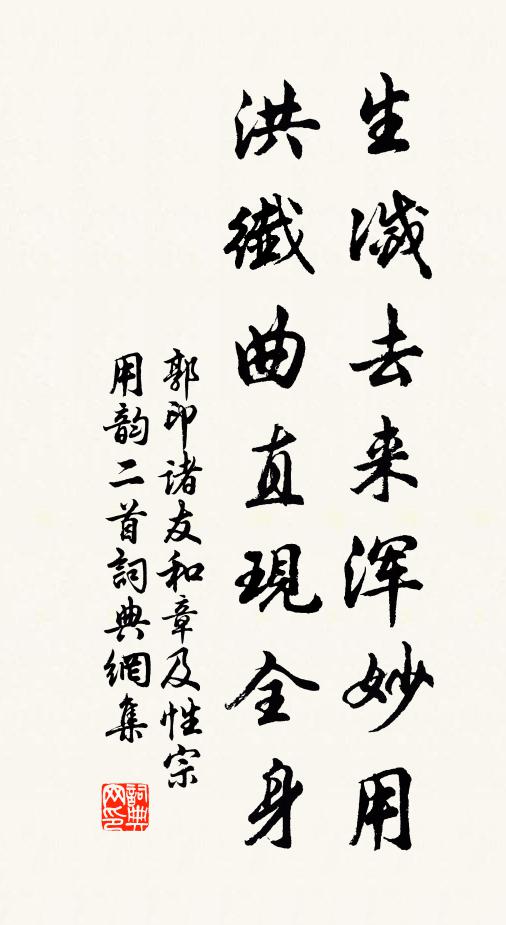 生滅去来浑妙用
洪纖曲直現全身
郭印诸友和章及性宗
用韵二首詞典網集
詞典网印